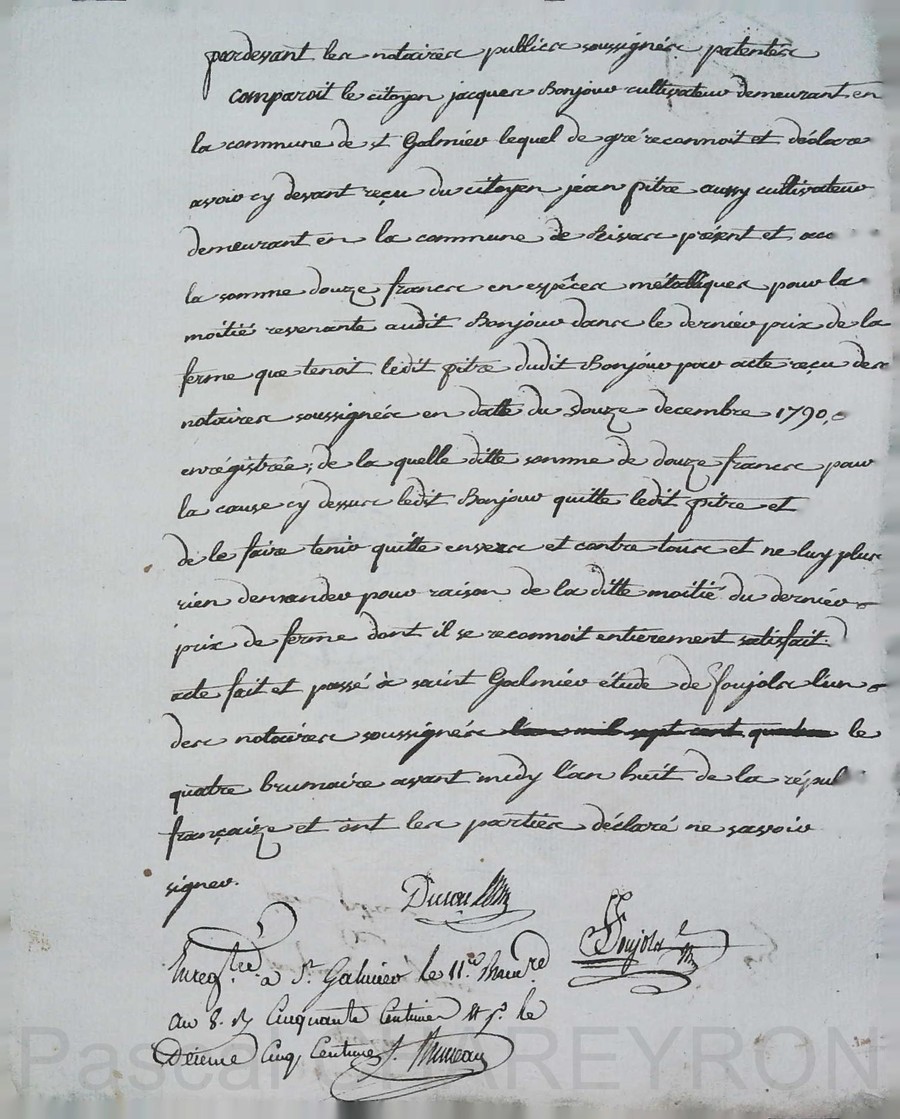 pardevant les notaires publics soussignés patentés
comparoit le citoyen jacques Bonjour cultivateur demeurant en
la commune de st Galmier lequel de gré reconnoit et déclare
avoir cy devant reçu du citoyen jean pitre aussy cultivateur
demeurant en la commune de présent et
la somme douze francs en espéces métalliques pour la
moitié revenante audit Bonjour dans le dernier prix de la
ferme que tenoit ledit pitre dudit Bonjour par acte reçu des
notaires soussignés en datte du douze decembre 1790,
enrégistrée; de la quelle ditte somme de douze francs pour
la cause cy dessus ledit Bonjour quitte ledit pitre et
de le faire tenir quitte envers et contre tous et ne luy plus
rien demander pour raison de la ditte moitié du dernier
prix de ferme dont il se reconnoit entierement satisfait.
acte fait et passé à saint Galmier étude de foujols l'un
des notaires soussignés l'an mil sept cent le
quatre brumaire avant midy l'an huit de la répul
françaize et ont les parties déclaré ne savoir
signer.
foujols
Enreg.tré a St. Galmier le 11.
au 8. Cinquante Centimes le
Dixieme Cinq Centimes
Pascal MAREYRON